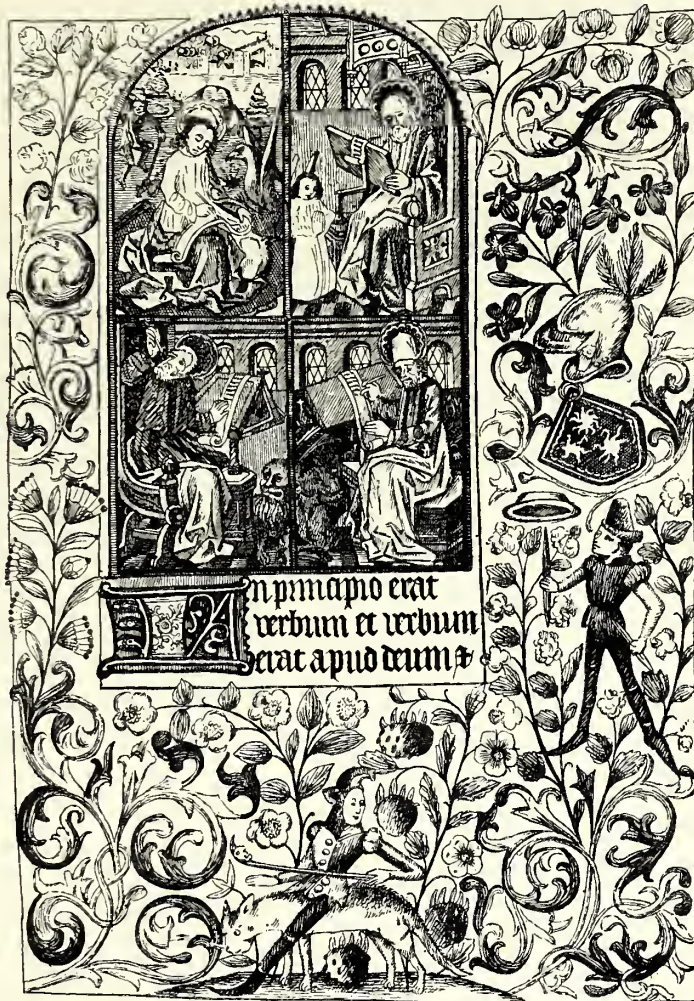 In principio erat
verbum et verbum
erat apud deum ⁊